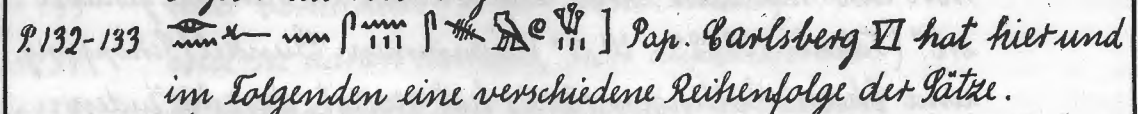 P. 132-133 𓁹𓈖𓆑 𓈖 𓋴𓈖𓏥 𓋴 𓅓𓏲𓆰𓏥 ] Pap. Carlsberg VI hat hier und
im Folgenden eine verschiedene Reihenfolge der Sätze.